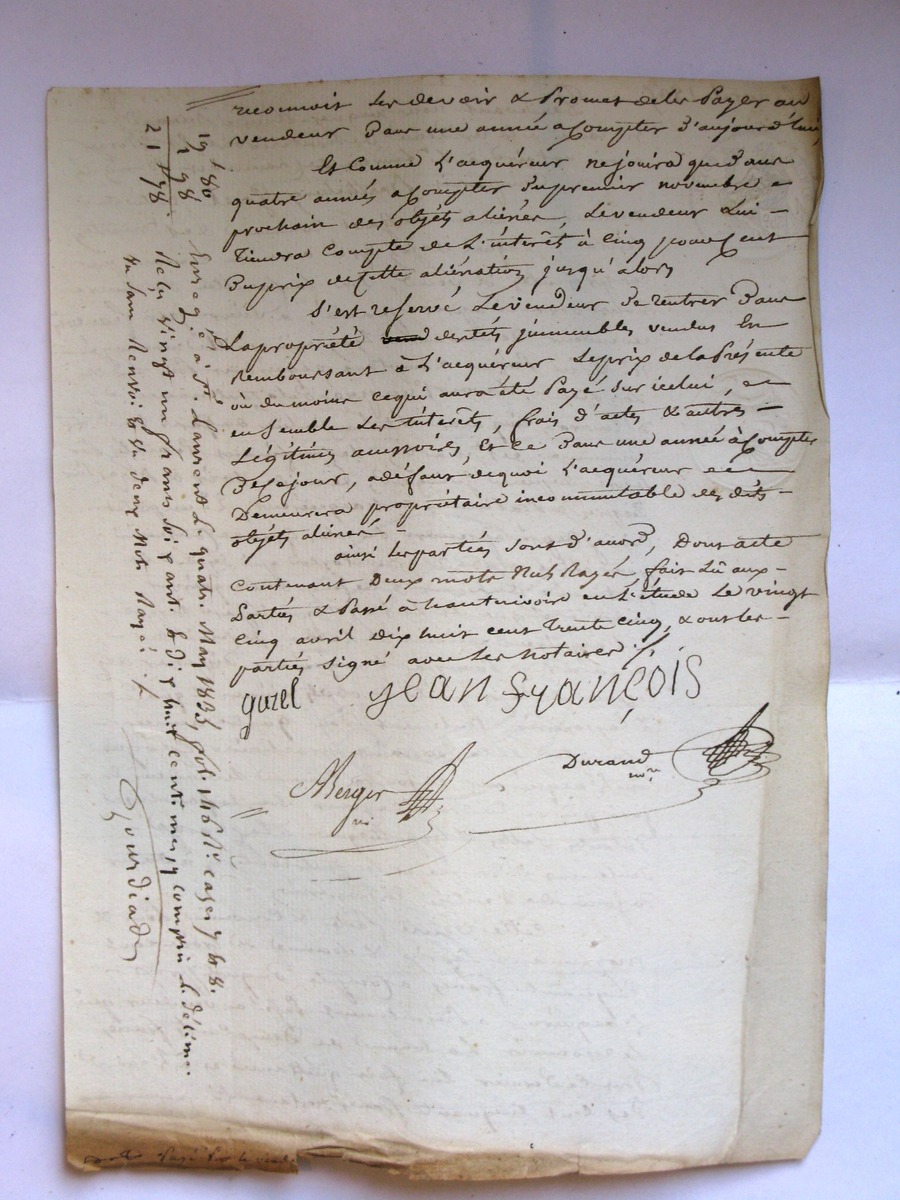 reconnoit les devoir & Promet de les Payer au
vendeur Dans une année a Compter d'aujourd'hui
Et Comme L'acquéreur ne jouira que dans
quatre années a Compter Du premier novembre
prochain des objets aliénés, Le vendeur Lui
Tiendra Compte de L'intérêt à Cinq pour Cent
Du prix de Cette aliénation jusqu'alors
S'est reservé Le vendeur De rentrer Dans
La propriété desdits immeubles vendus En
remboursant à L'acquéreur Le prix de la Présente
où du moins ce qui aura été Payé sur icelui,
ensemble Les intérêts, frais d'actes & autres
Légitimes accessoires, Et Ce Dans une année à Compter
De Ce jour, a défaut de quoi L'acquéreur
Demeurera propriétaire incommutable des dits
objets aliénés
ainsi Les parties sont d'accord, Dont acte
Contenant Deux mots Nuls Rayés, fait Lû aux
Parties & Passé à hautrivoire en L'étude Le vingt
Cinq avril Dix huit cent trente Cinq, & ont les
parties signé avec Les Notaires
gurel jean françois
Merger
Durand nre
19 80
1 98
21 78
Enreg.é à St Laurent le quatre May 1835, fol. 146 Ro cases 7 & 8.
Reçu vingt un francs soixante & dix huit centimes, y compris le décime.
sans Renvoi & deux Mots Rayés
Gourdiad
Payé Par le vendeur